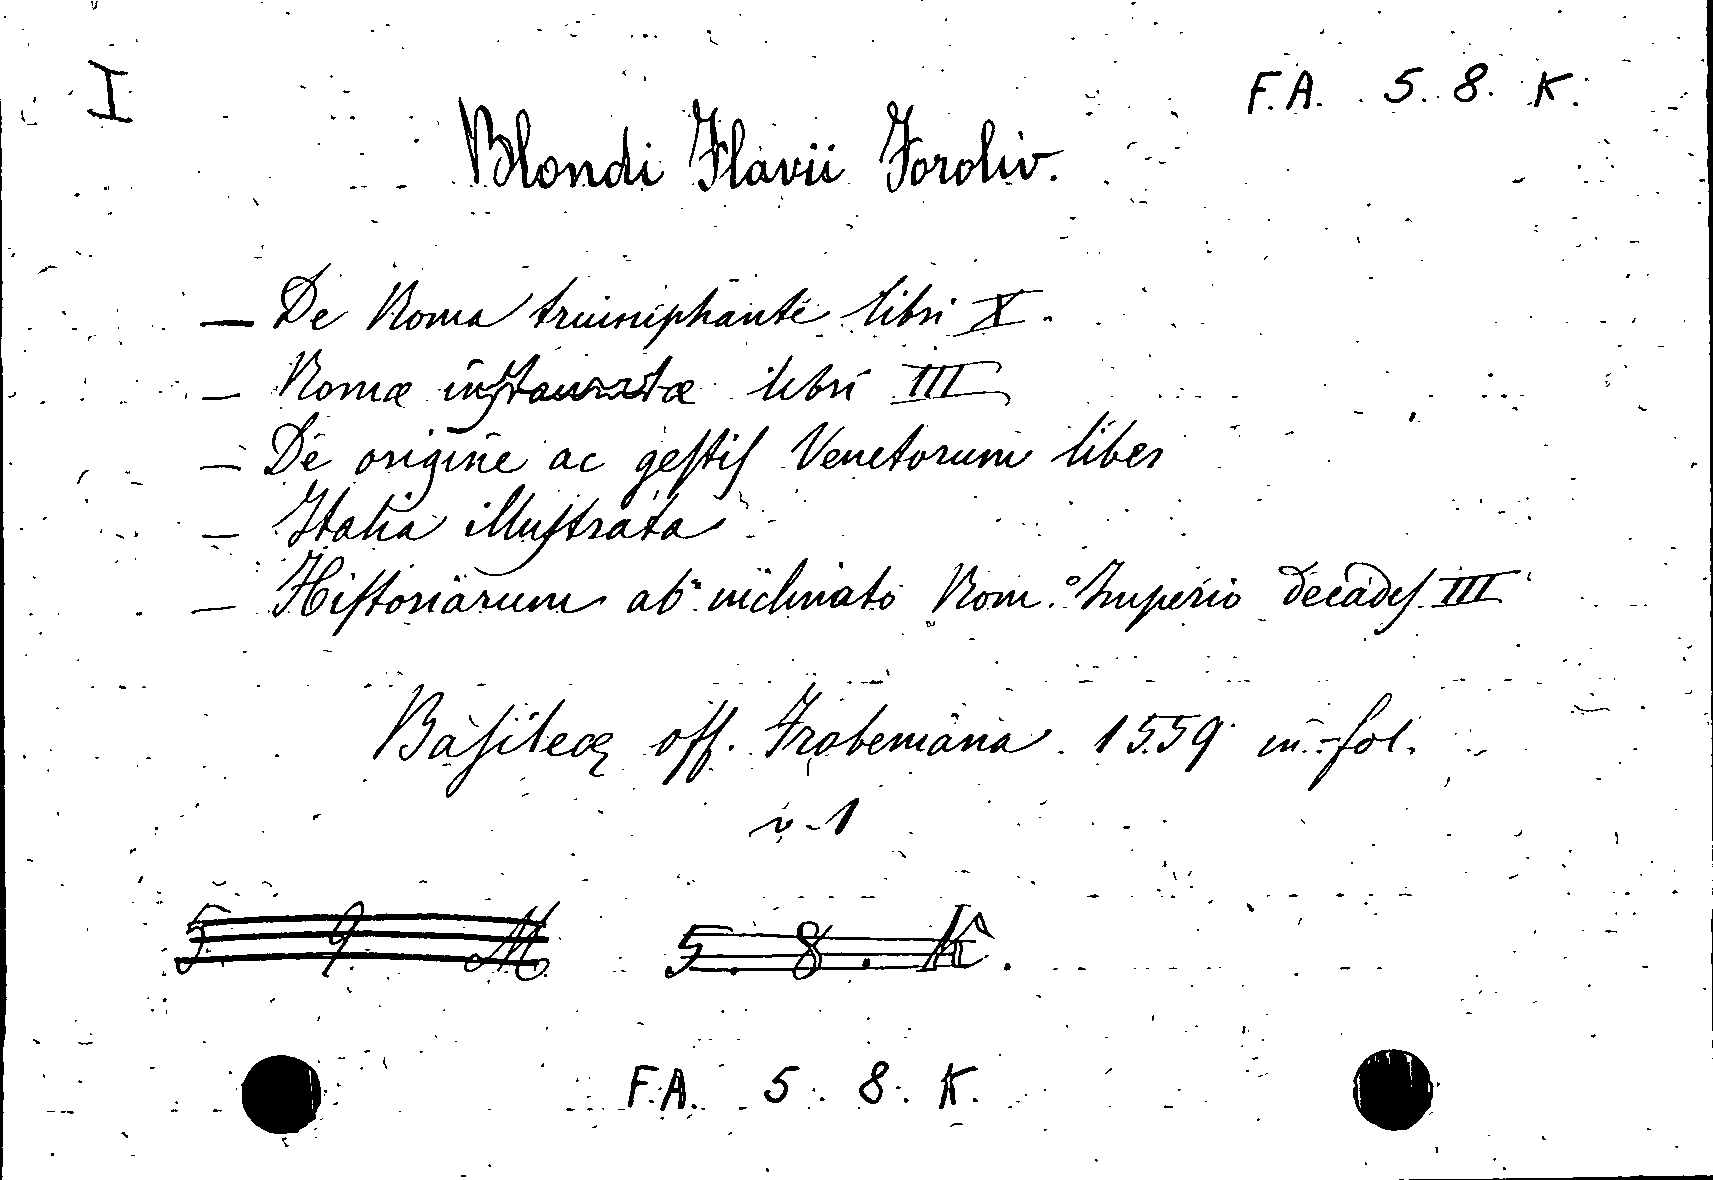 I
F.A. 5. 8. K.
Blondi Flavii Foroliv.
— De Roma triumphante libri X.
— Romæ instauratæ libri III
— De origine ac gestis Venetorum liber
— Italia illustrata
— Historiarum ab inclinato Rom.º Imperio decades III
Basileæ off. Frobeniana 1559 in-fol.
v. 1
5 9. M
5. 8. K.
F.A. 5. 8. K.